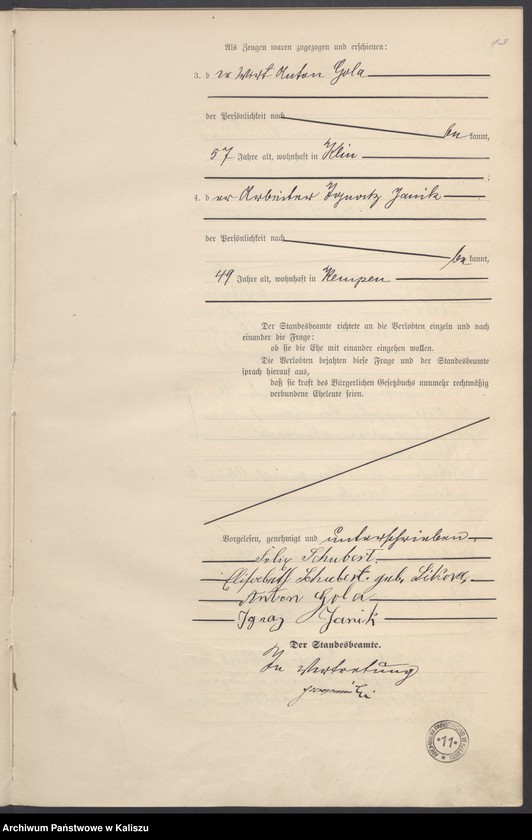 13
Als Zeugen waren zugezogen und erschienen:
3. der Wirt Anton Gola
der Persönlichkeit nach
bekannt,
57 Jahre alt, wohnhaft in Klin
;
4. der Arbeiter Ignatz Janik
der Persönlichkeit nach
bekannt,
49 Jahre alt, wohnhaft in Kempen
Der Standesbeamte richtete an die Verlobten einzeln und nach
einander die Frage:
ob sie die Ehe mit einander eingehen wollen.
Die Verlobten bejahten diese Frage und der Standesbeamte
sprach hierauf aus,
daß sie kraft des Bürgerlichen Gesetzbuchs nunmehr rechtmäßig
verbundene Eheleute seien.
Vorgelesen, genehmigt und unterschrieben
Felix Schubert
Elisabeth Schubert geb. Sikora
Anton Gola
Ignaz Janik
Der Standesbeamte.
In Vertretung
11
Archiwum Państwowe w Kaliszu